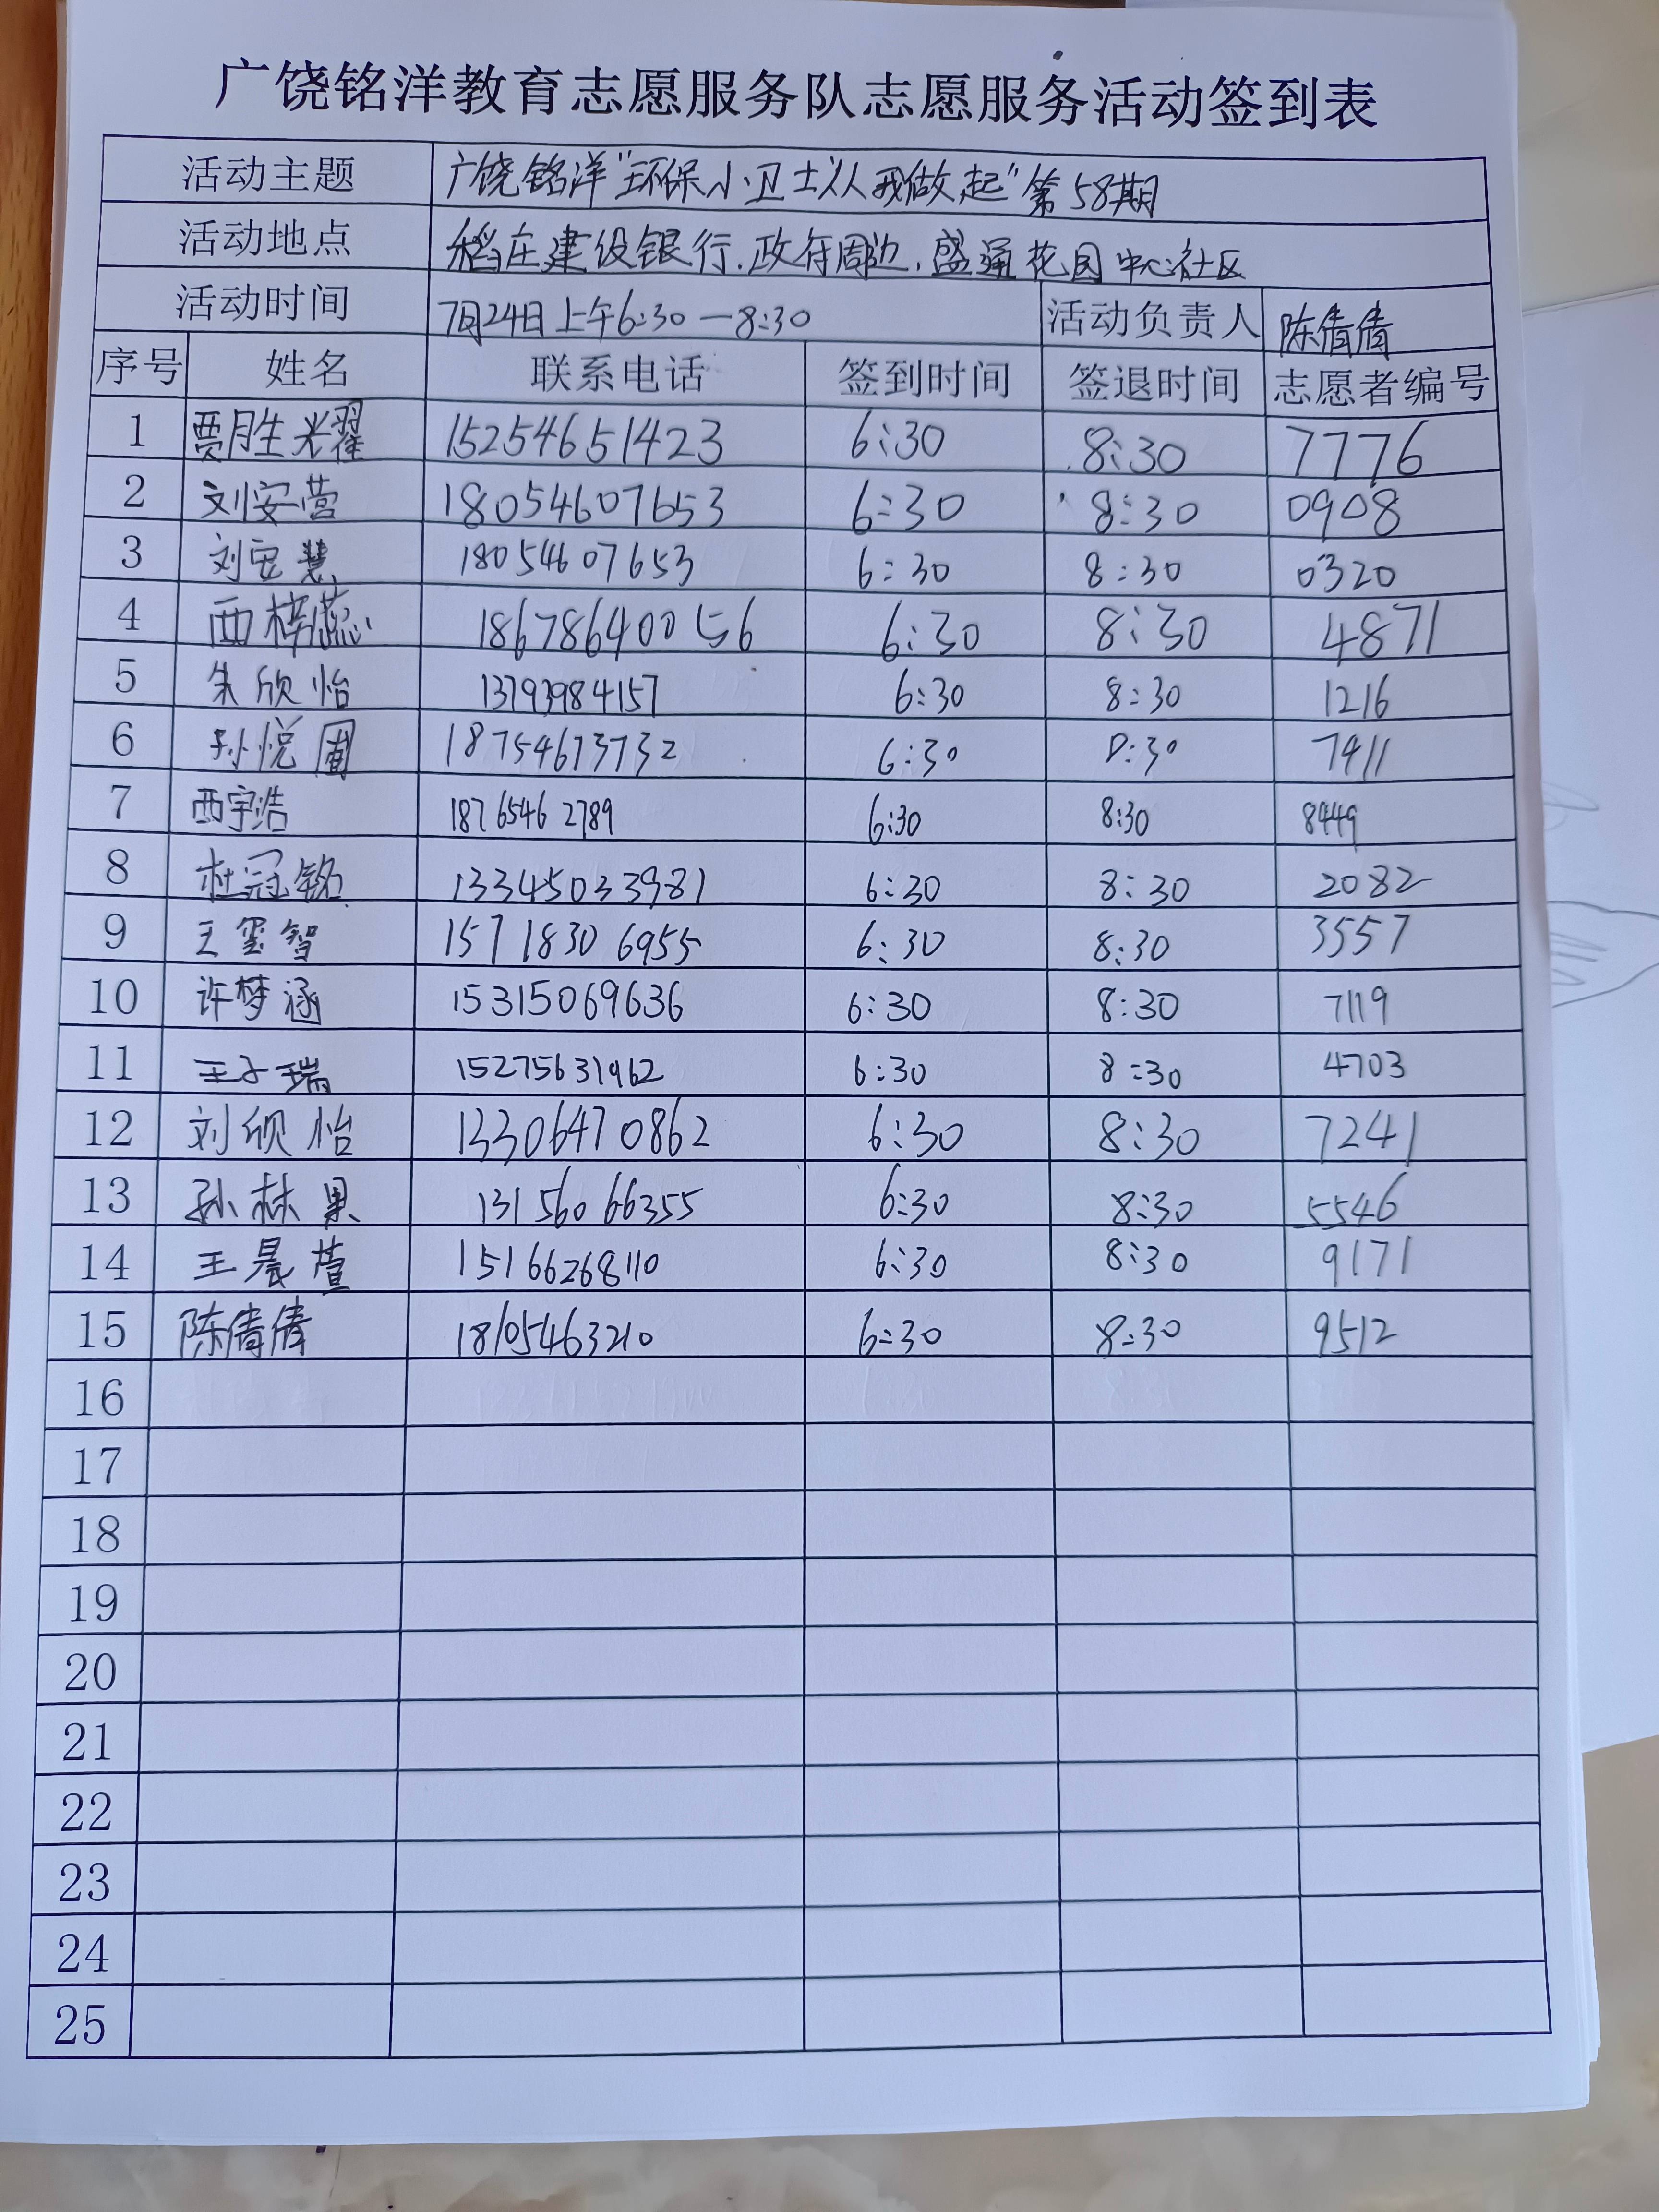 广饶铭洋教育志愿服务队志愿服务活动签到表
活动主题 广饶铭洋"环保小卫士从我做起"第58期
活动地点 稻庄建设银行.政府周边,盛通花园中心社区
活动时间 7月24日上午6:30—8:30 活动负责人 陈倩倩
序号 姓名 联系电话 签到时间 签退时间 志愿者编号
1 贾胜光翟 15254651423 6:30 8:30 7776
2 刘安营 18054607653 6:30 8:30 0908
3 刘安慧 18054607653 6:30 8:30 0320
4 西梓蕊 18678640056 6:30 8:30 4871
5 朱欣怡 13793984157 6:30 8:30 1216
6 孙悦 18754673732 6:30 8:30 7411
7 西宇浩 18765462789 6:30 8:30 8449
8 杜冠铭 13345033981 6:30 8:30 2082
9 王玺智 15718306955 6:30 8:30 3557
10 许梦涵 15315069636 6:30 8:30 7119
11 王子瑞 15275631962 6:30 8:30 4703
12 刘欣怡 13306470862 6:30 8:30 7241
13 孙林果 13156066355 6:30 8:30 5546
14 王晨萱 15166268110 6:30 8:30 9171
15 陈倩倩 18105463210 6:30 8:30 9512
16
17
18
19
20
21
22
23
24
25